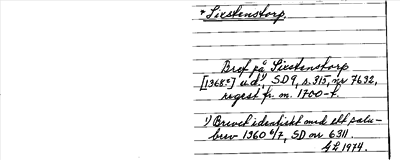 * Sixstenstorp.
Brev på Sixstenstorp
[1368?] u.d.¹⁾, SD 9, s. 315, nr 7632,
regest fr. m. 1700-t.
¹⁾ Brevet identiskt med ett pala-
brev 1360 6/7, SD nr 6311.
1974.